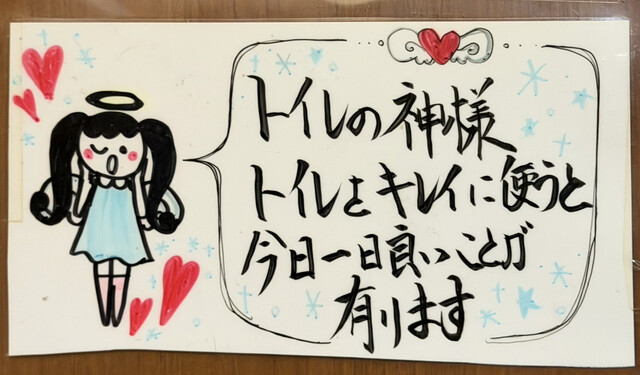 トイレの神様
トイレをキレイに使うと
今日一日良いことが
有ります